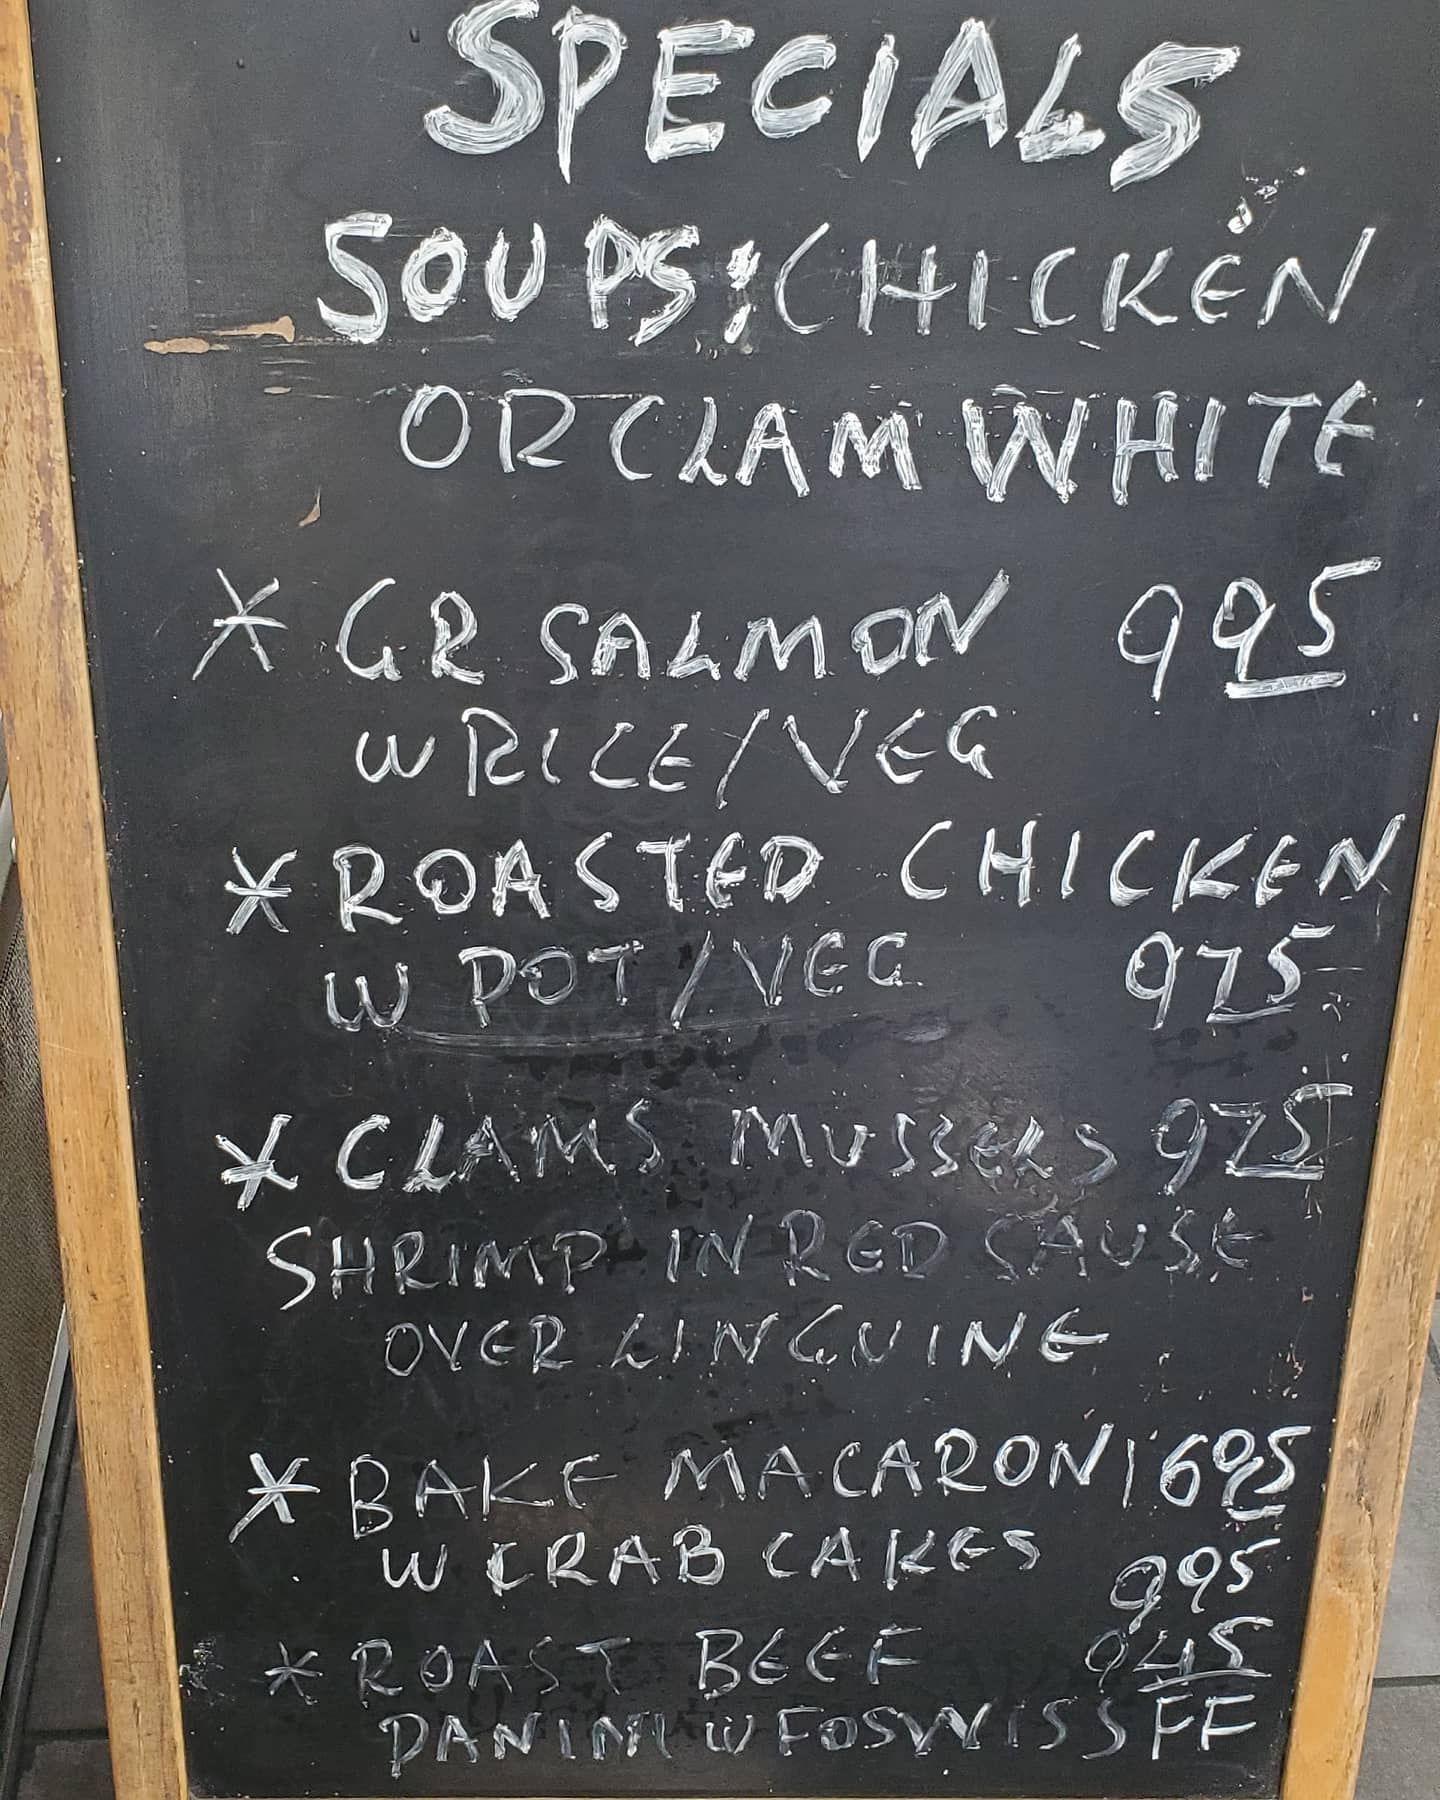 SPECIALS
SOUPS: CHICKEN
OR CLAM WHITE
* GR SALMON 995
W RICE/VEG
* ROASTED CHICKEN
W POT/VEG 975
* CLAMS MUSSELS 975
SHRIMP IN RED SAUSE
OVER LINGUINE
* BAKE MACARONI 695
W CRAB CAKES 995
* ROAST BEEF 945
PANINI W FOSWISS FF